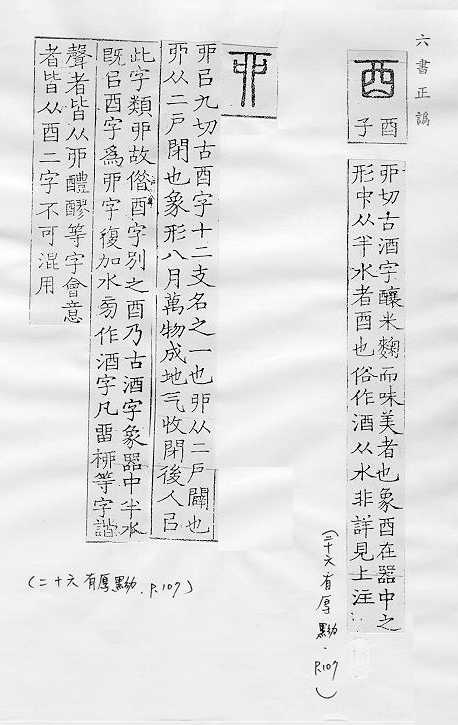 六書正譌
酉
酉
子
丣切古酒字釀米麴而味美者也象酉在器中之
形中从半水者酉也俗作酒从水非詳見上注
(二十六有厚黝．P.107)
丣
丣㠯九切古酉字十二支名之一也戼从二戶闢也
丣从二戶閉也象形八月萬物成地气收閉後人㠯
此字類戼故借酉字別之酉乃古酒字象器中半水
旣㠯酉字爲丣字復加水旁作酒字凡畱桺等字諧
聲者皆从丣醴醪等字會意
者皆从酉二字不可混用
(二十六有厚黝．P.107)